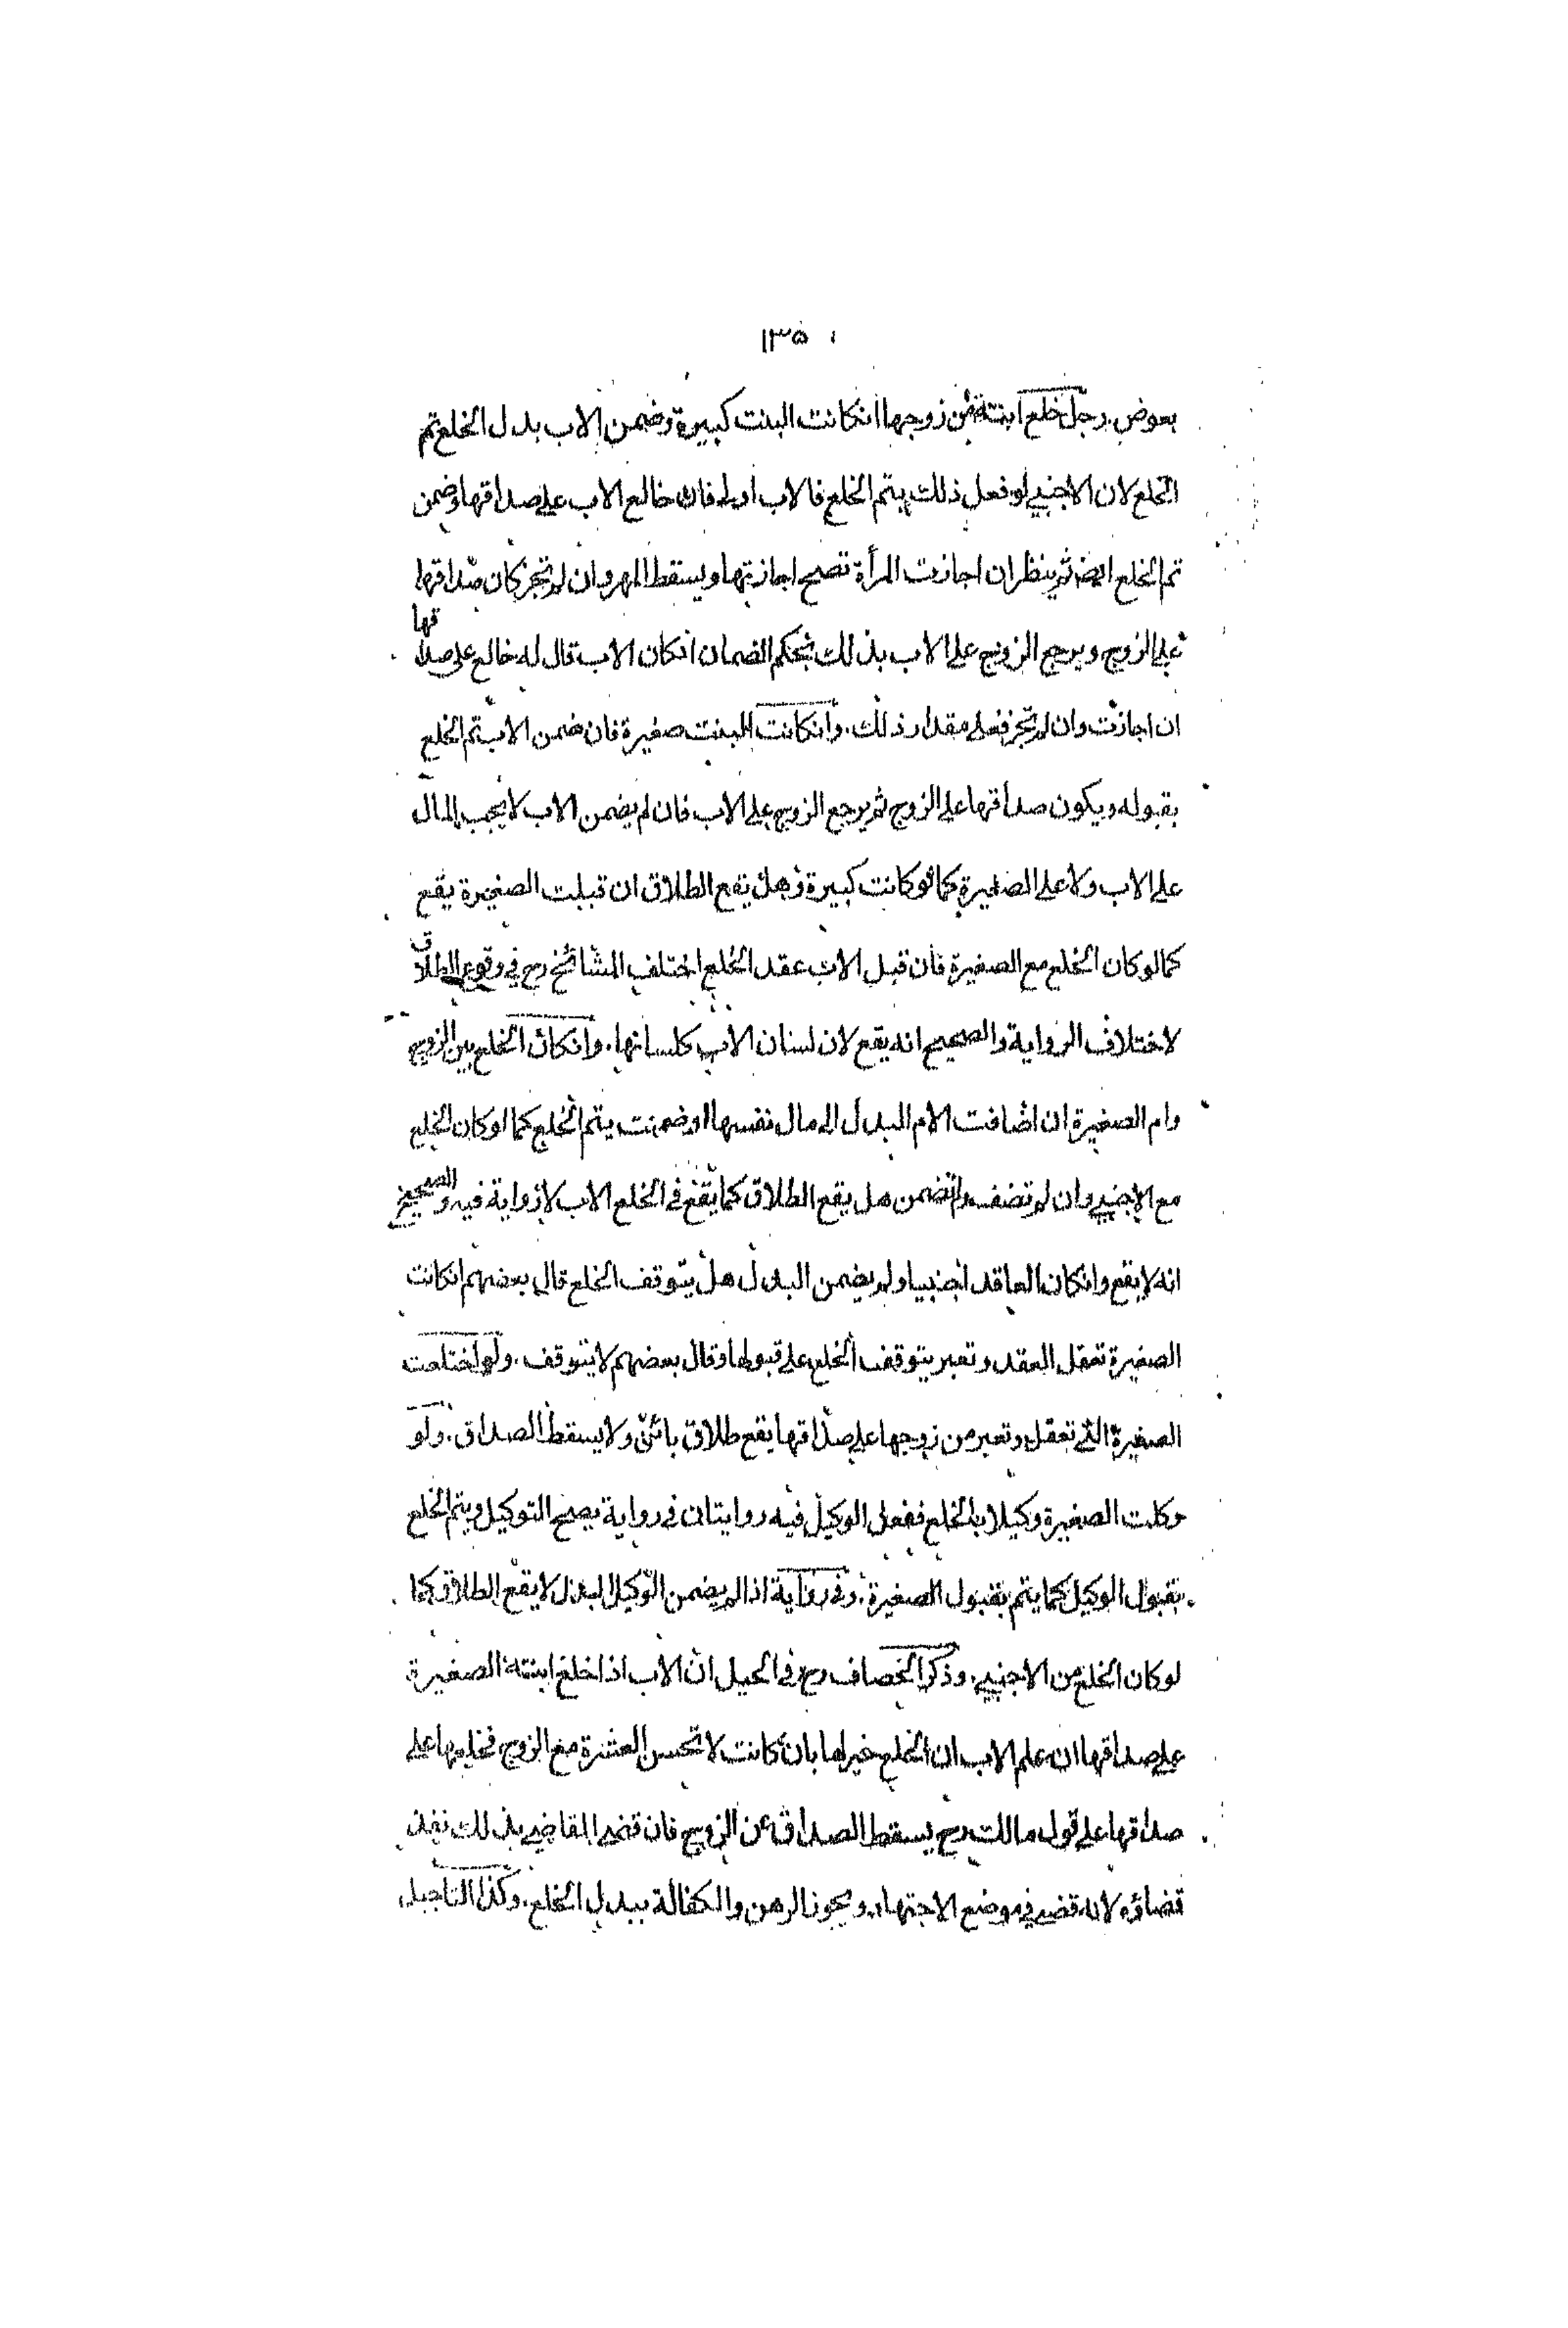 ١٣٥
بعوض. رجل خلع ابنته من زوجها انكانت البنت كبيرة وضمن الاب بدل الخلع تم
الخلع لان الاجنبي لو فعل ذلك يتم الخلع فالاب اولى فان خالع الاب على صداقها وضمن
تم الخلع ايضا ثم ينظر ان اجازت المرأة تصح اجازتها ويسقط المهر وان لم تجز كان صداقها
على الزوج ويرجع الزوج على الاب بذلك بحكم الضمان انكان الاب قال له خالع على صداقها
ان اجازت وان لم تجز فعلى مقدار ذلك. وانكانت البنت صغيرة فان ضمن الاب تم الخلع
بقبوله ويكون صداقها على الزوج ثم يرجع الزوج على الاب فان لم يضمن الاب لا يجب المال
على الاب ولا على الصغيرة كما لو كانت كبيرة وهل يقع الطلاق ان قبلت الصغيرة يقع
كما لو كان الخلع مع الصغيرة فان قبل الاب عقد الخلع اختلف المشائخ رح في وقوع الطلاق
لاختلاف الرواية والصحيح انه يقع لان لسان الاب كلسانها. وانكان الخلع بين الزوج
وام الصغيرة ان اضافت الام البدل الى مال نفسها او ضمنت يتم الخلع كما لو كان الخلع
مع الاجنبي وان لم تضف ولم تضمن هل يقع الطلاق كما يقع في الخلع الاب لا رواية فيه والصحيح
انه لا يقع وانكان العاقد اجنبيا ولم يضمن البدل هل يتوقف الخلع قال بعضهم انكانت
الصغيرة تعقل العقد وتعبر يتوقف الخلع على قبولها وقال بعضهم لا يتوقف. ولو اختلعت
الصغيرة التي تعقل وتعبر من زوجها على صداقها يقع طلاق بائن ولا يسقط الصداق. ولو
وكلت الصغيرة وكيلا بالخلع ففعل الوكيل فيه روايتان في رواية يصح التوكيل ويتم الخلع
بقبول الوكيل كما يتم بقبول الصغيرة. وفي رواية اذا لم يضمن الوكيل البدل لا يقع الطلاق كما
لو كان الخلع من الاجنبي. وذكر الخصاف رح في الحيل ان الاب اذا خلع ابنته الصغيرة
على صداقها ان علم الاب ان الخلع خير لها بان كانت لا تحسن العشرة مع الزوج فخلعها على
صداقها على قول مالك رح يسقط الصداق عن الزوج فان قضى القاضي بذلك نفذ
قضاؤه لانه قضى في موضع الاجتهاد. ويجوز الرهن والكفالة ببدل الخلع. وكذا التاجيل